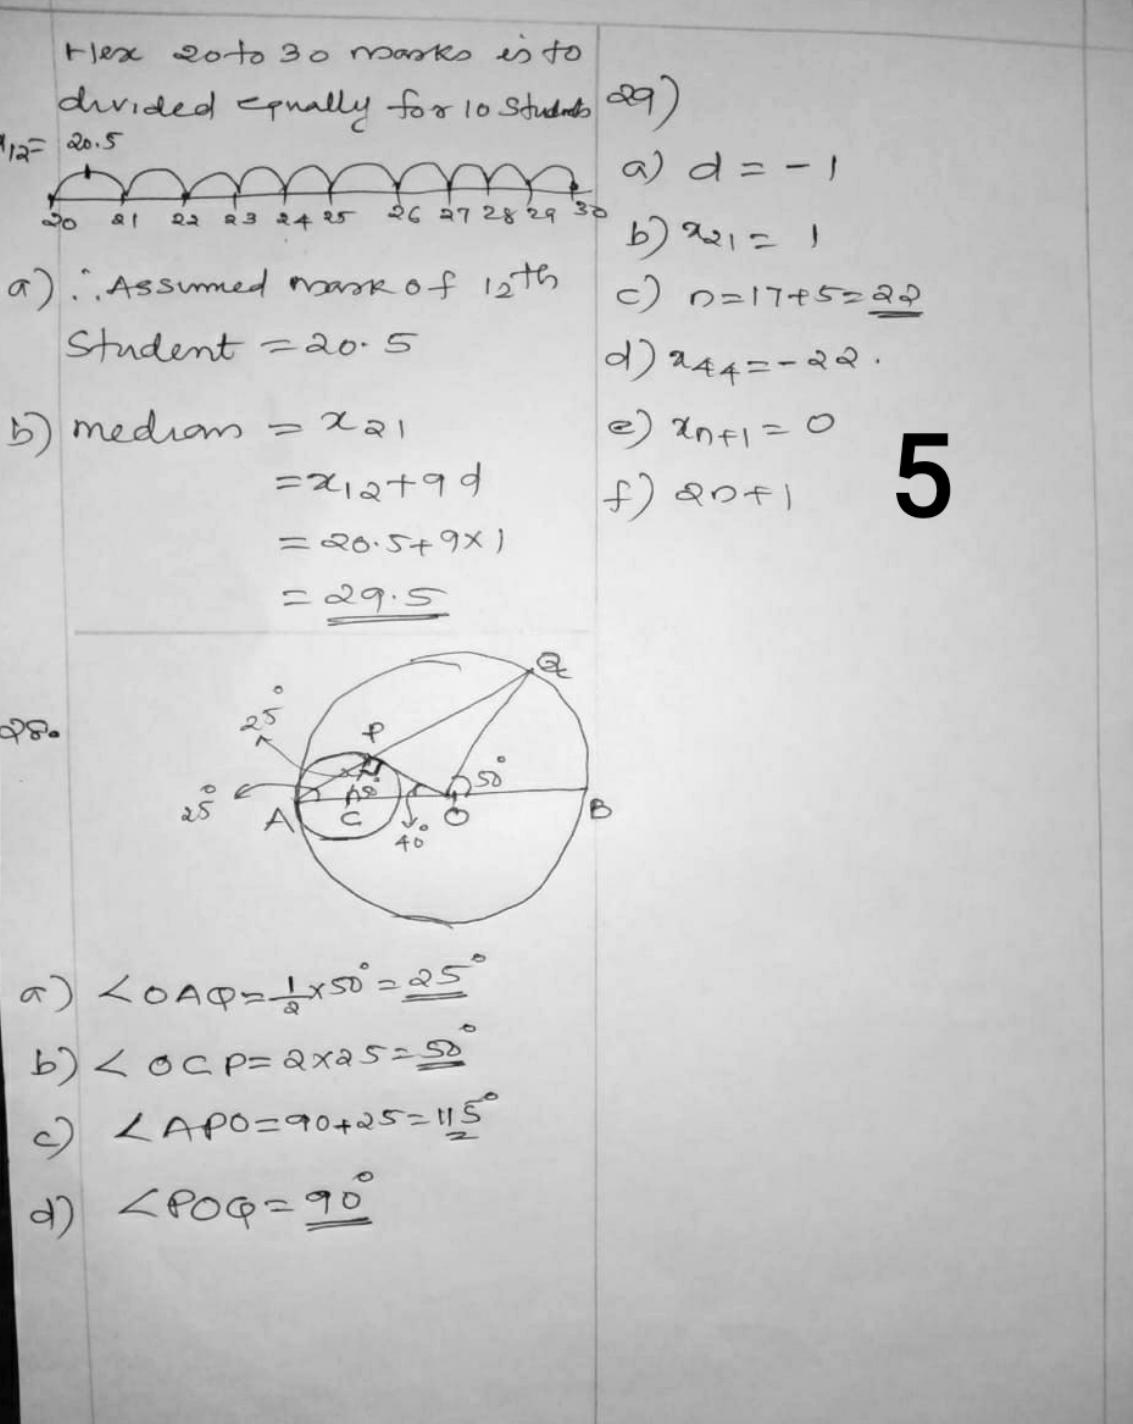 Hex 20 to 30 marks is to
divided equally for 10 Students
x12= 20.5
20 21 22 23 24 25 26 27 28 29 30
a) ∴ Assumed mark of 12th
Student = 20.5
b) median = x21
= x12+9d
= 20.5+9×1
= 29.5
28.
Q
25°
P
50°
25°
A
C
O
B
40°
a) ∠OAQ = 1/2 × 50° = 25°
b) ∠OCP = 2×25 = 50°
c) ∠APO = 90+25 = 115°
d) ∠POQ = 90°
29)
a) d = -1
b) x21 = 1
c) n=17+5=22
d) x44 = -22.
e) xn+1 = 0
f) 2n+1
5